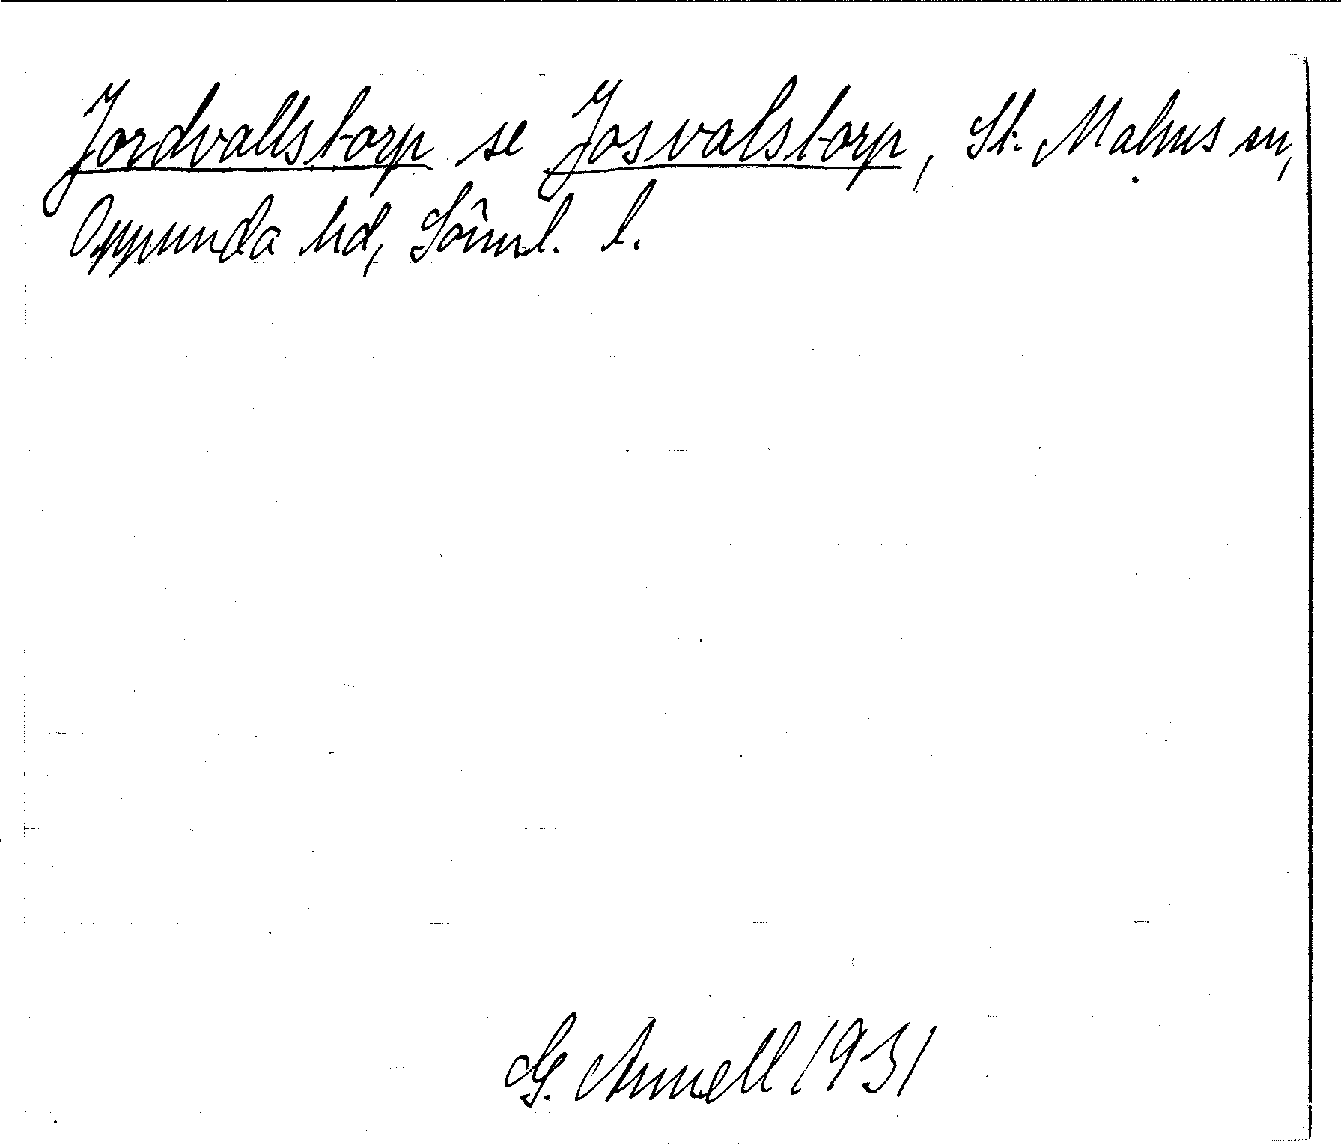 Jordvallstorp se Josvalstorp, St. Malms sn,
Oppunda hd, Sörml. l.
G. Arnell 1931